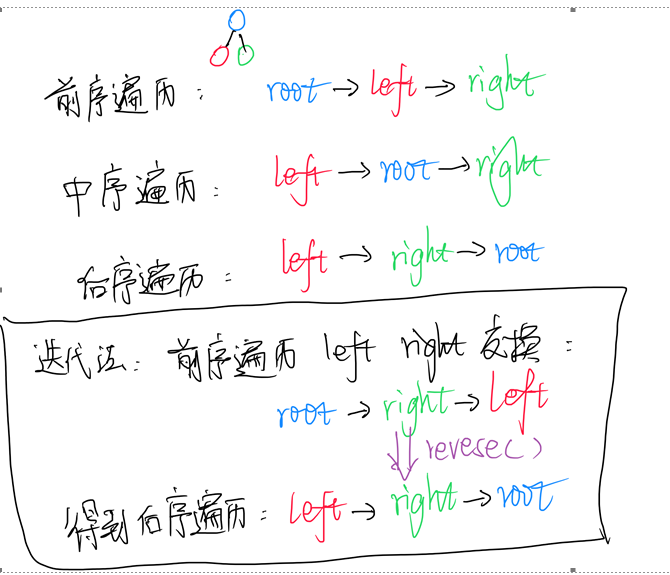 前序遍历： root → left → right
中序遍历： left → root → right
后序遍历： left → right → root
迭代法：前序遍历 left right 交换：
root → right → left
revese()
得到后序遍历： left → right → root